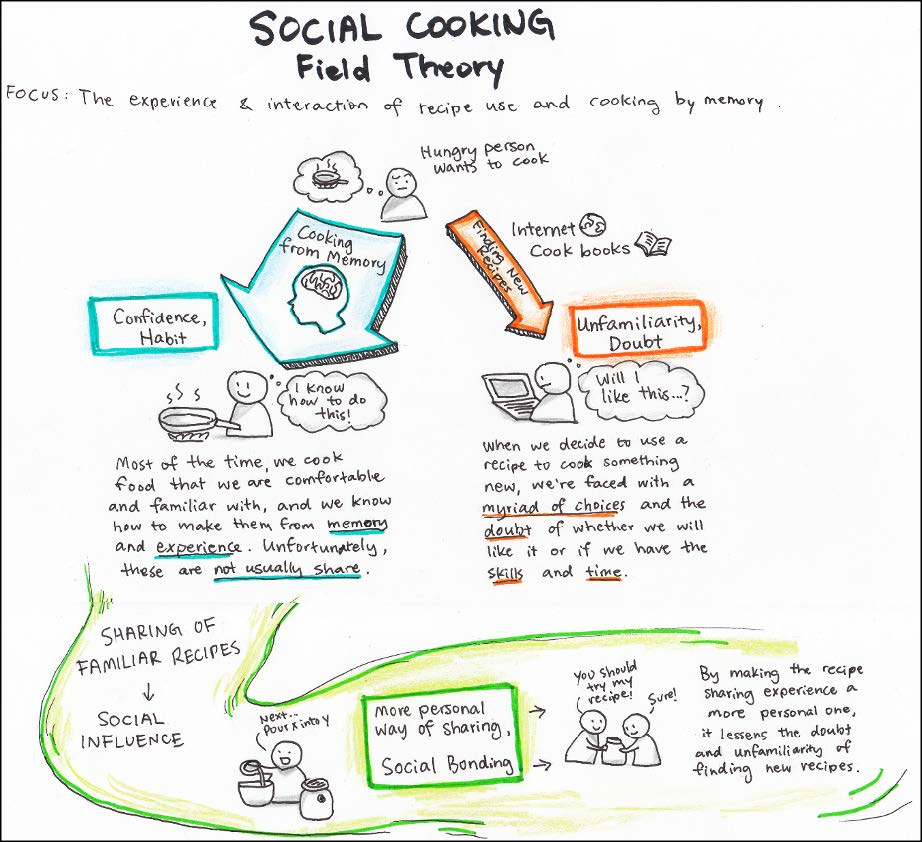 SOCIAL COOKING
Field Theory
FOCUS: The experience & interaction of recipe use and cooking by memory.
Hungry person
wants to cook
Cooking
from Memory
Finding New
Recipes
Internet
Cook books
Confidence,
Habit
Unfamiliarity,
Doubt
I know
how to do
this!
Will I
like this...?
Most of the time, we cook
food that we are comfortable
and familiar with, and we know
how to make them from memory
and experience. Unfortunately,
these are not usually share.
When we decide to use a
recipe to cook something
new, we're faced with a
myriad of choices and the
doubt of whether we will
like it or if we have the
skills and time.
SHARING OF
FAMILIAR RECIPES
↓
SOCIAL
INFLUENCE
Next...
Pour X into Y
More personal
way of sharing,
Social Bonding
You should
try my
recipe!
Sure!
By making the recipe
sharing experience a
more personal one,
it lessens the doubt
and unfamiliarity of
finding new recipes.